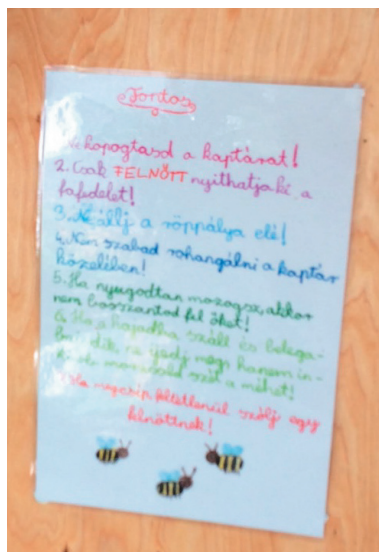 Fontos
kopogtasd a kaptárat!
2. Csak FELNŐTT nyithatja ki a
fafedelet!
3. Ne állj a röppálya elé!
4. Nem szabad rohangálni a kaptár
közelében!
5. Ha nyugodtan mozogsz, akkor
nem bosszantod fel őket!
6. Ha a hajadba száll és belega-
ne ijedj meg hanem in-
a méhet!
Ha megcsíp feltétlenül szólj egy
felnőttnek!